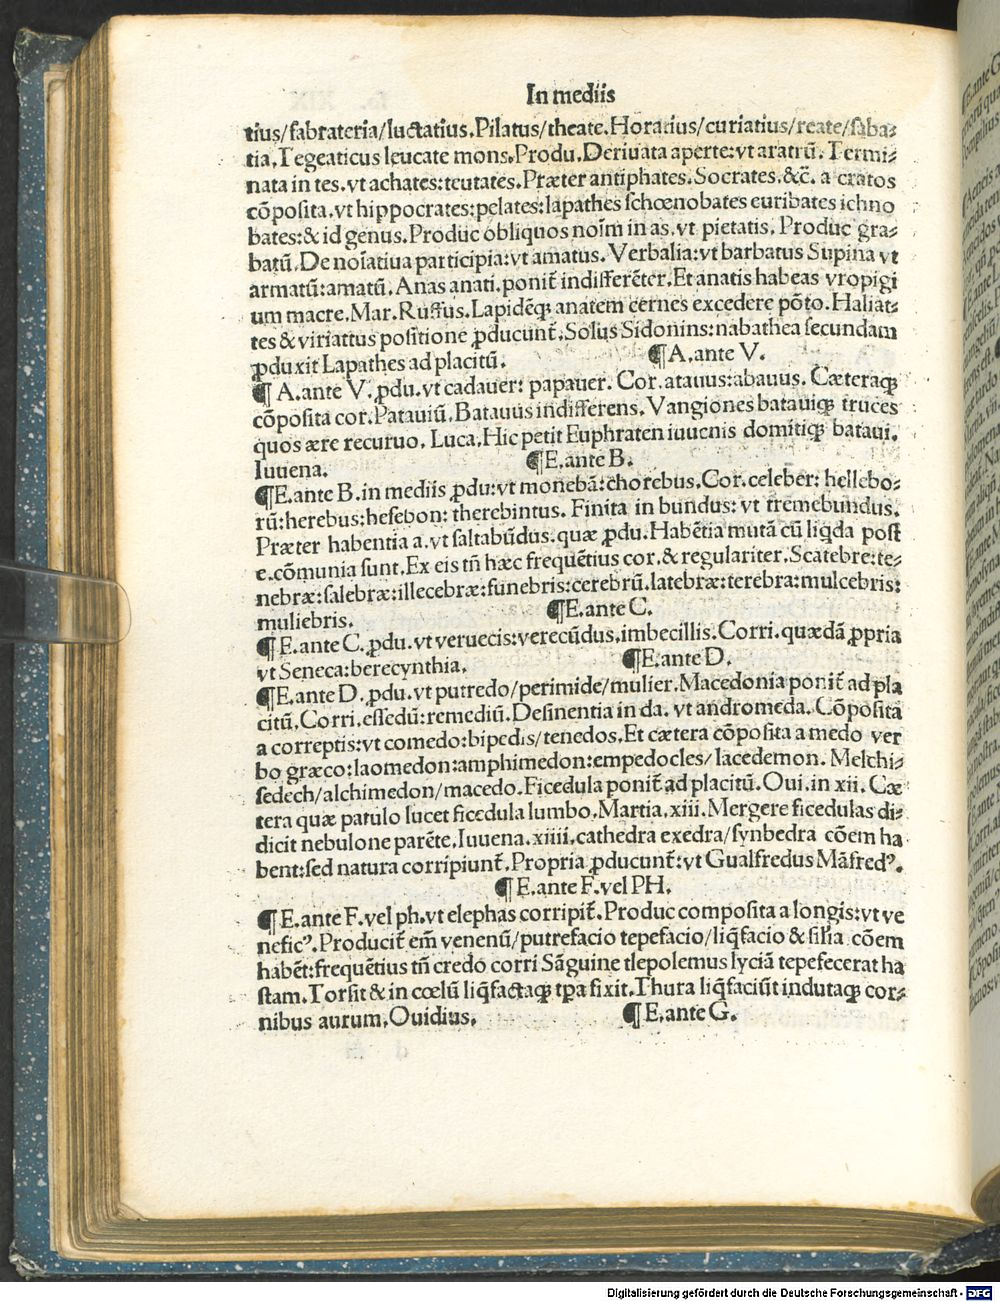 In mediis
tius/fabrateria/luctatius.Pilatus/theate.Horatius/curiatius/reate/saba⸗
tia.Tegeaticus leucate mons.Produ.Deriuata aperte:vt aratrũ. Termi⸗
nata in tes.vt achates:teutates.Præter antiphates.Socrates.&c̃. a cratos
cõposita.vt hippocrates:pelates:lapathes schœnobates euribates ichno
bates:& id genus.Produc obliquos noĩm in as.vt pietatis. Produc gra⸗
batũ.De noĩatiua participia:vt amatus. Verbalia:vt barbatus Supina vt
armatũ:amatũ. Anas anati.ponit̃ indifferẽter.Et anatis habeas vropigi
um macre.Mar.Ruffus.Lapidẽqꝫ anatem cernes excedere põto.Haliat⸗
tes & viriattus positione ꝓducunt̃.Solus Sidonius:nabathea secundam
ꝓduxit Lapathes ad placitũ. ¶ A.ante V.
¶ A.ante V.ꝓdu.vt cadauer: papauer. Cor.atauus:abauus. Cæteraqꝫ
cõposita cor.Patauiũ.Batauus indifferens.Vangiones batauiqꝫ truces
quos ære recuruo. Luca.Hic petit Euphraten iuuenis domitiqꝫ bataui.
Iuuena. ¶E.ante B.
¶E.ante B.in mediis ꝓdu:vt monebã:chorebus.Cor.celeber: hellebo⸗
rũ:herebus:hesebon: therebintus. Finita in bundus: vt tremebundus.
Præter habentia a.vt saltabũdus.quæ ꝓdu.Habẽtia mutã cũ liq̃da post
e.cõmunia sunt.Ex eis tñ hæc frequẽtius cor.& regulariter.Scatebre:te⸗
nebræ:salebræ:illecebræ:funebris:cerebrũ.latebræ:terebra:mulcebris:
muliebris. ¶E.ante C.
¶E.ante C.ꝓdu.vt veruecis:verecũdus.imbecillis.Corri.quædã ꝓpria
vt Seneca:berecynthia. ¶E.ante D.
¶E.ante D.ꝓdu.vt putredo/perimide/mulier.Macedonia ponit̃ ad pla
citũ.Corri.essedũ:remediũ.Desinentia in da. vt andromeda.Cõposita
a correptis:vt comedo:bipedis/tenedos.Et cætera cõposita a medo ver
bo græco:laomedon:amphimedon:empedocles/lacedemon. Melchi⸗
sedech/alchimedon/macedo.Ficedula ponit̃ ad placitũ. Oui.in xii. Cæ
tera quæ patulo lucet ficedula lumbo.Martia.xiii.Mergere ficedulas di⸗
dicit nebulone parẽte.Iuuena.xiiii.cathedra exedra/synbedra cõem ha
bent:sed natura corripiunt̃.Propria ꝓducunt̃:vt Gualfredus Mãfredꝰ.
¶E.ante F.vel PH.
¶E.ante F.vel ph.vt elephas corripit̃.Produc composita a longis:vt ve
neficꝰ.Producit̃ em̃ venenũ/putrefacio tepefacio/liq̃facio & silia cõem
habẽt:frequẽtius tñ credo corri Sãguine tlepolemus lyciã tepefecerat ha
stam.Torsit & in cœlũ liq̃factaqꝫ tꝑa fixit.Thura liq̃faciũt indutaqꝫ cor⸗
nibus aurum.Ouidius. ¶E.ante G.
Digitalisierung gefördert durch die Deutsche Forschungsgemeinschaft - DFG